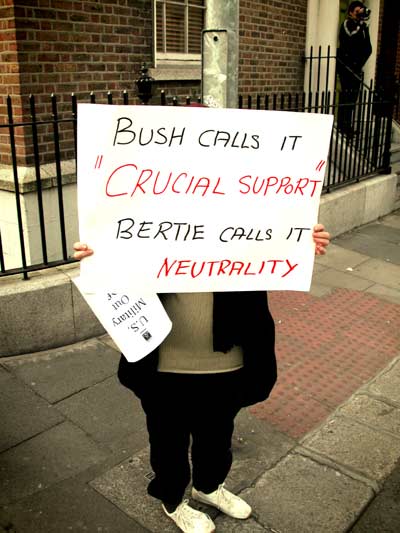 BUSH CALLS IT
"CRUCIAL SUPPORT"
BERTIE CALLS IT
NEUTRALITY
U.S.
Military
Out